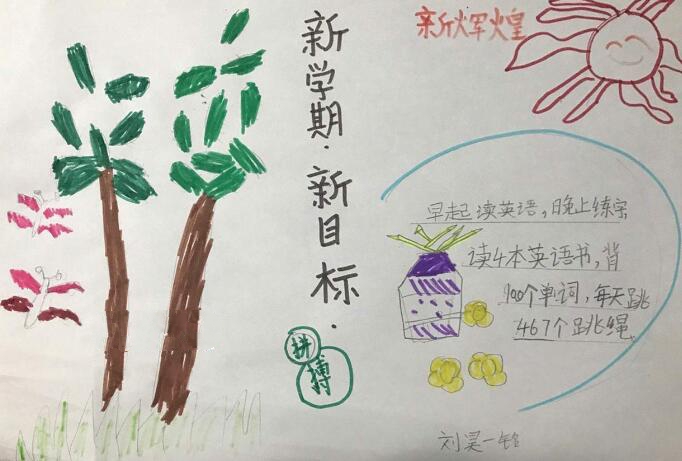 新学期·新目标·
新辉煌
早起读英语,晚上练字
读4本英语书,背
900个单词,每天跳
467个跳绳
拼搏
刘昊一